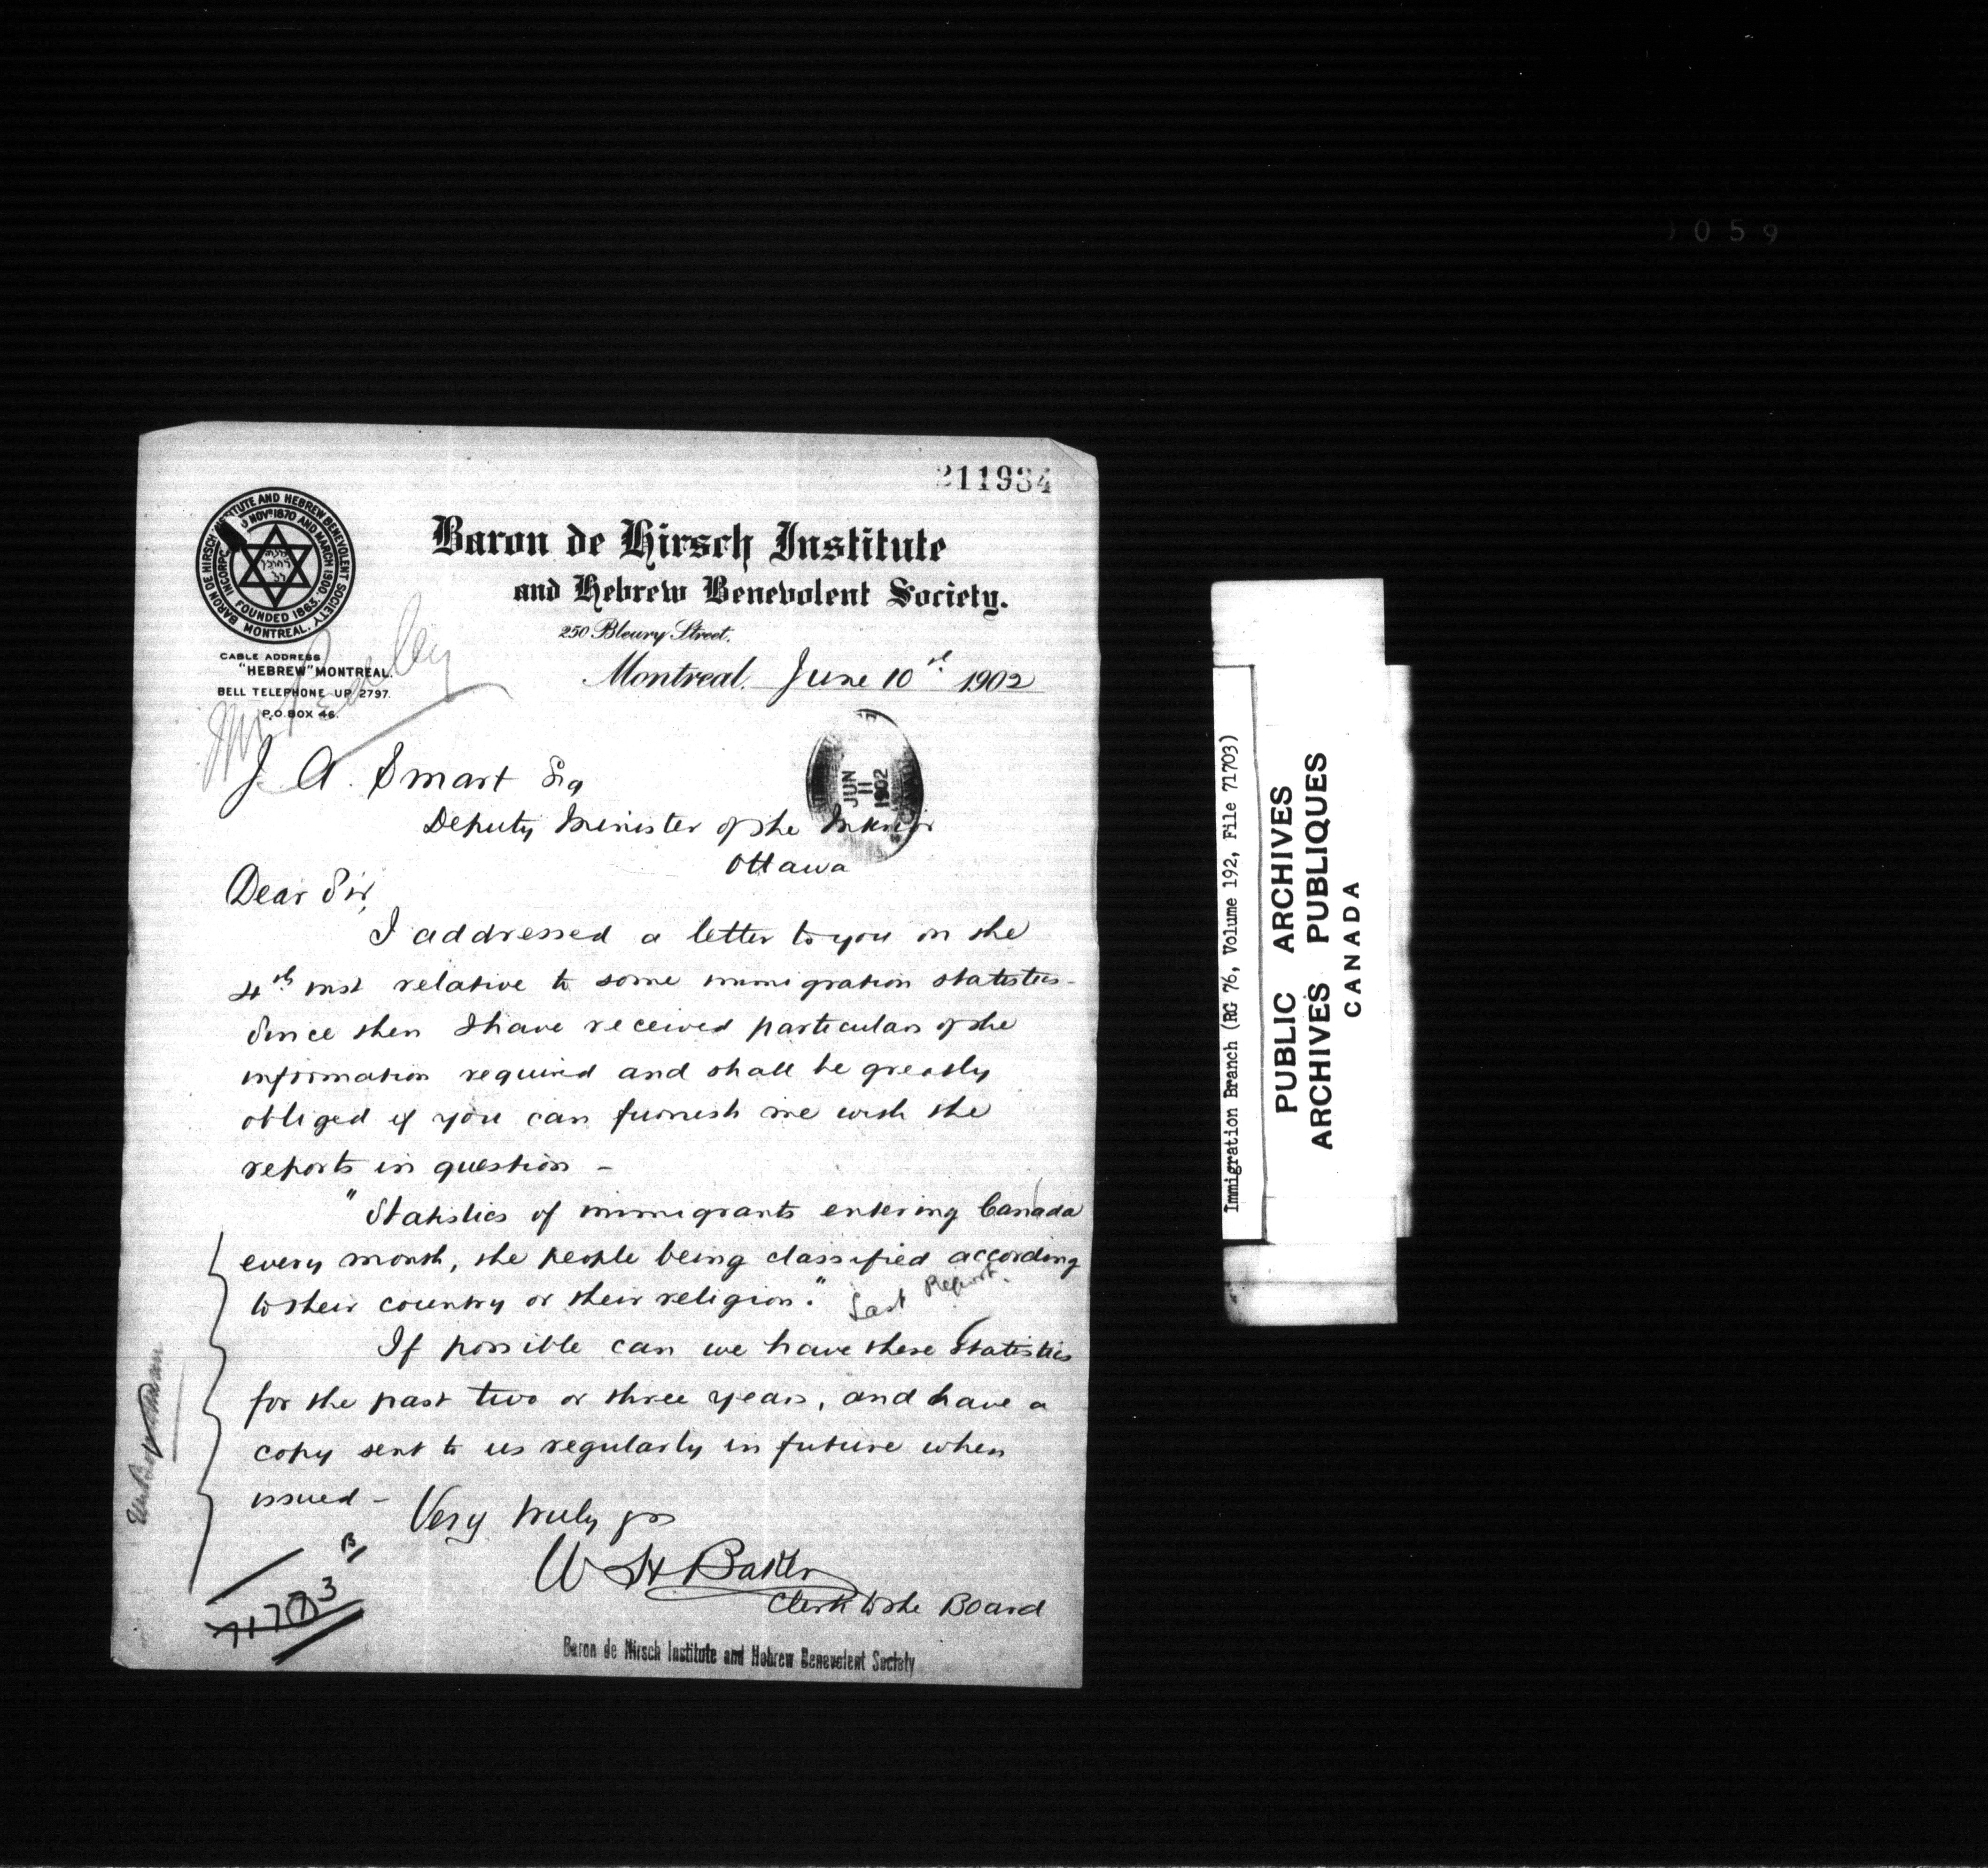 3059
211934
BARON DE HIRSCH INSTITUTE AND HEBREW BENEVOLENT SOCIETY
MONTREAL.
NOVR 1870 AND MARCH 1900.
FOUNDED 1863.
Baron de Hirsch Institute
and Hebrew Benevolent Society.
250 Bleury Street.
CABLE ADDRESS
"HEBREW" MONTREAL.
BELL TELEPHONE UP 2797.
P.O. BOX 46.
Montreal, June 10th 1902
JUN
11
1902
J. A. Smart Esq
Deputy Minister of the Interior
Ottawa
Dear Sir,
I addressed a letter to you on the
4th inst relative to some immigration statistics -
Since then I have received particulars of the
information required and shall be greatly
obliged if you can furnish me with the
reports in question -
"Statistics of immigrants entering Canada
every month, the people being classified according
to their country or their religion." Last Report.
If possible can we have these statistics
for the past two or three years, and have a
copy sent to us regularly in future when
issued - Very truly yrs
W H Baker
Clerk to the Board
71703
Baron de Hirsch Institute and Hebrew Benevolent Society
Immigration Branch (RG 76, Volume 192, File 71703)
PUBLIC ARCHIVES
ARCHIVES PUBLIQUES
CANADA